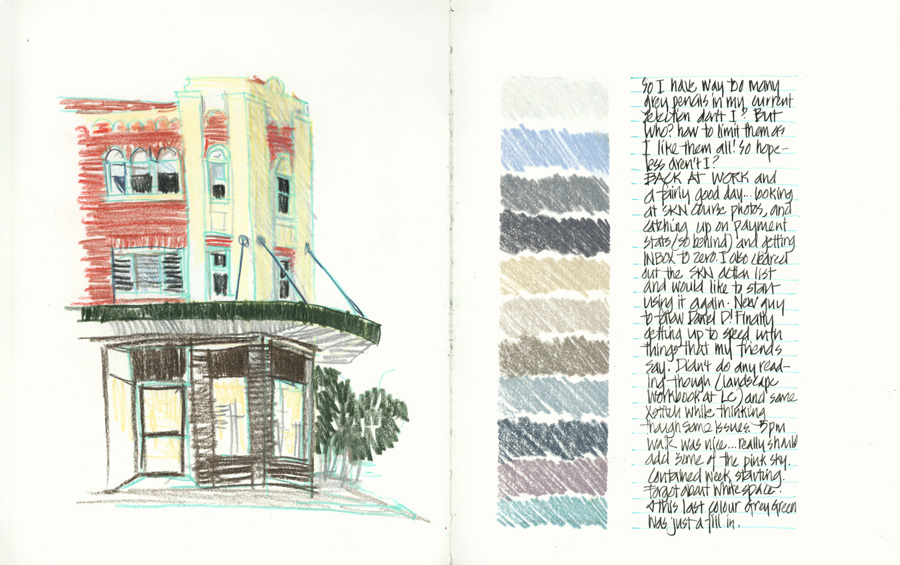 So I have way too many
grey pencils in my current
selection don't I? But
who? how to limit them as
I like them all! So hope-
less aren't I?
BACK AT WORK and
a fairly good day... looking
at SKN course photos, and
catching up on payment
stats (so behind) and getting
INBOX to zero. I also cleared
out the SKN action list
and would like to start
using it again. New guy
to follow Daniel D! Finally
getting up to speed with
things that my friends
say. Didn't do any read-
ing though (landscape
workbook at LC) and some
Xstitch while thinking
though some issues. 5pm
walk was nice... really should
add some of the pink sky.
Contained week starting.
Forgot about white space.
& this last colour grey green
was just a fill in.